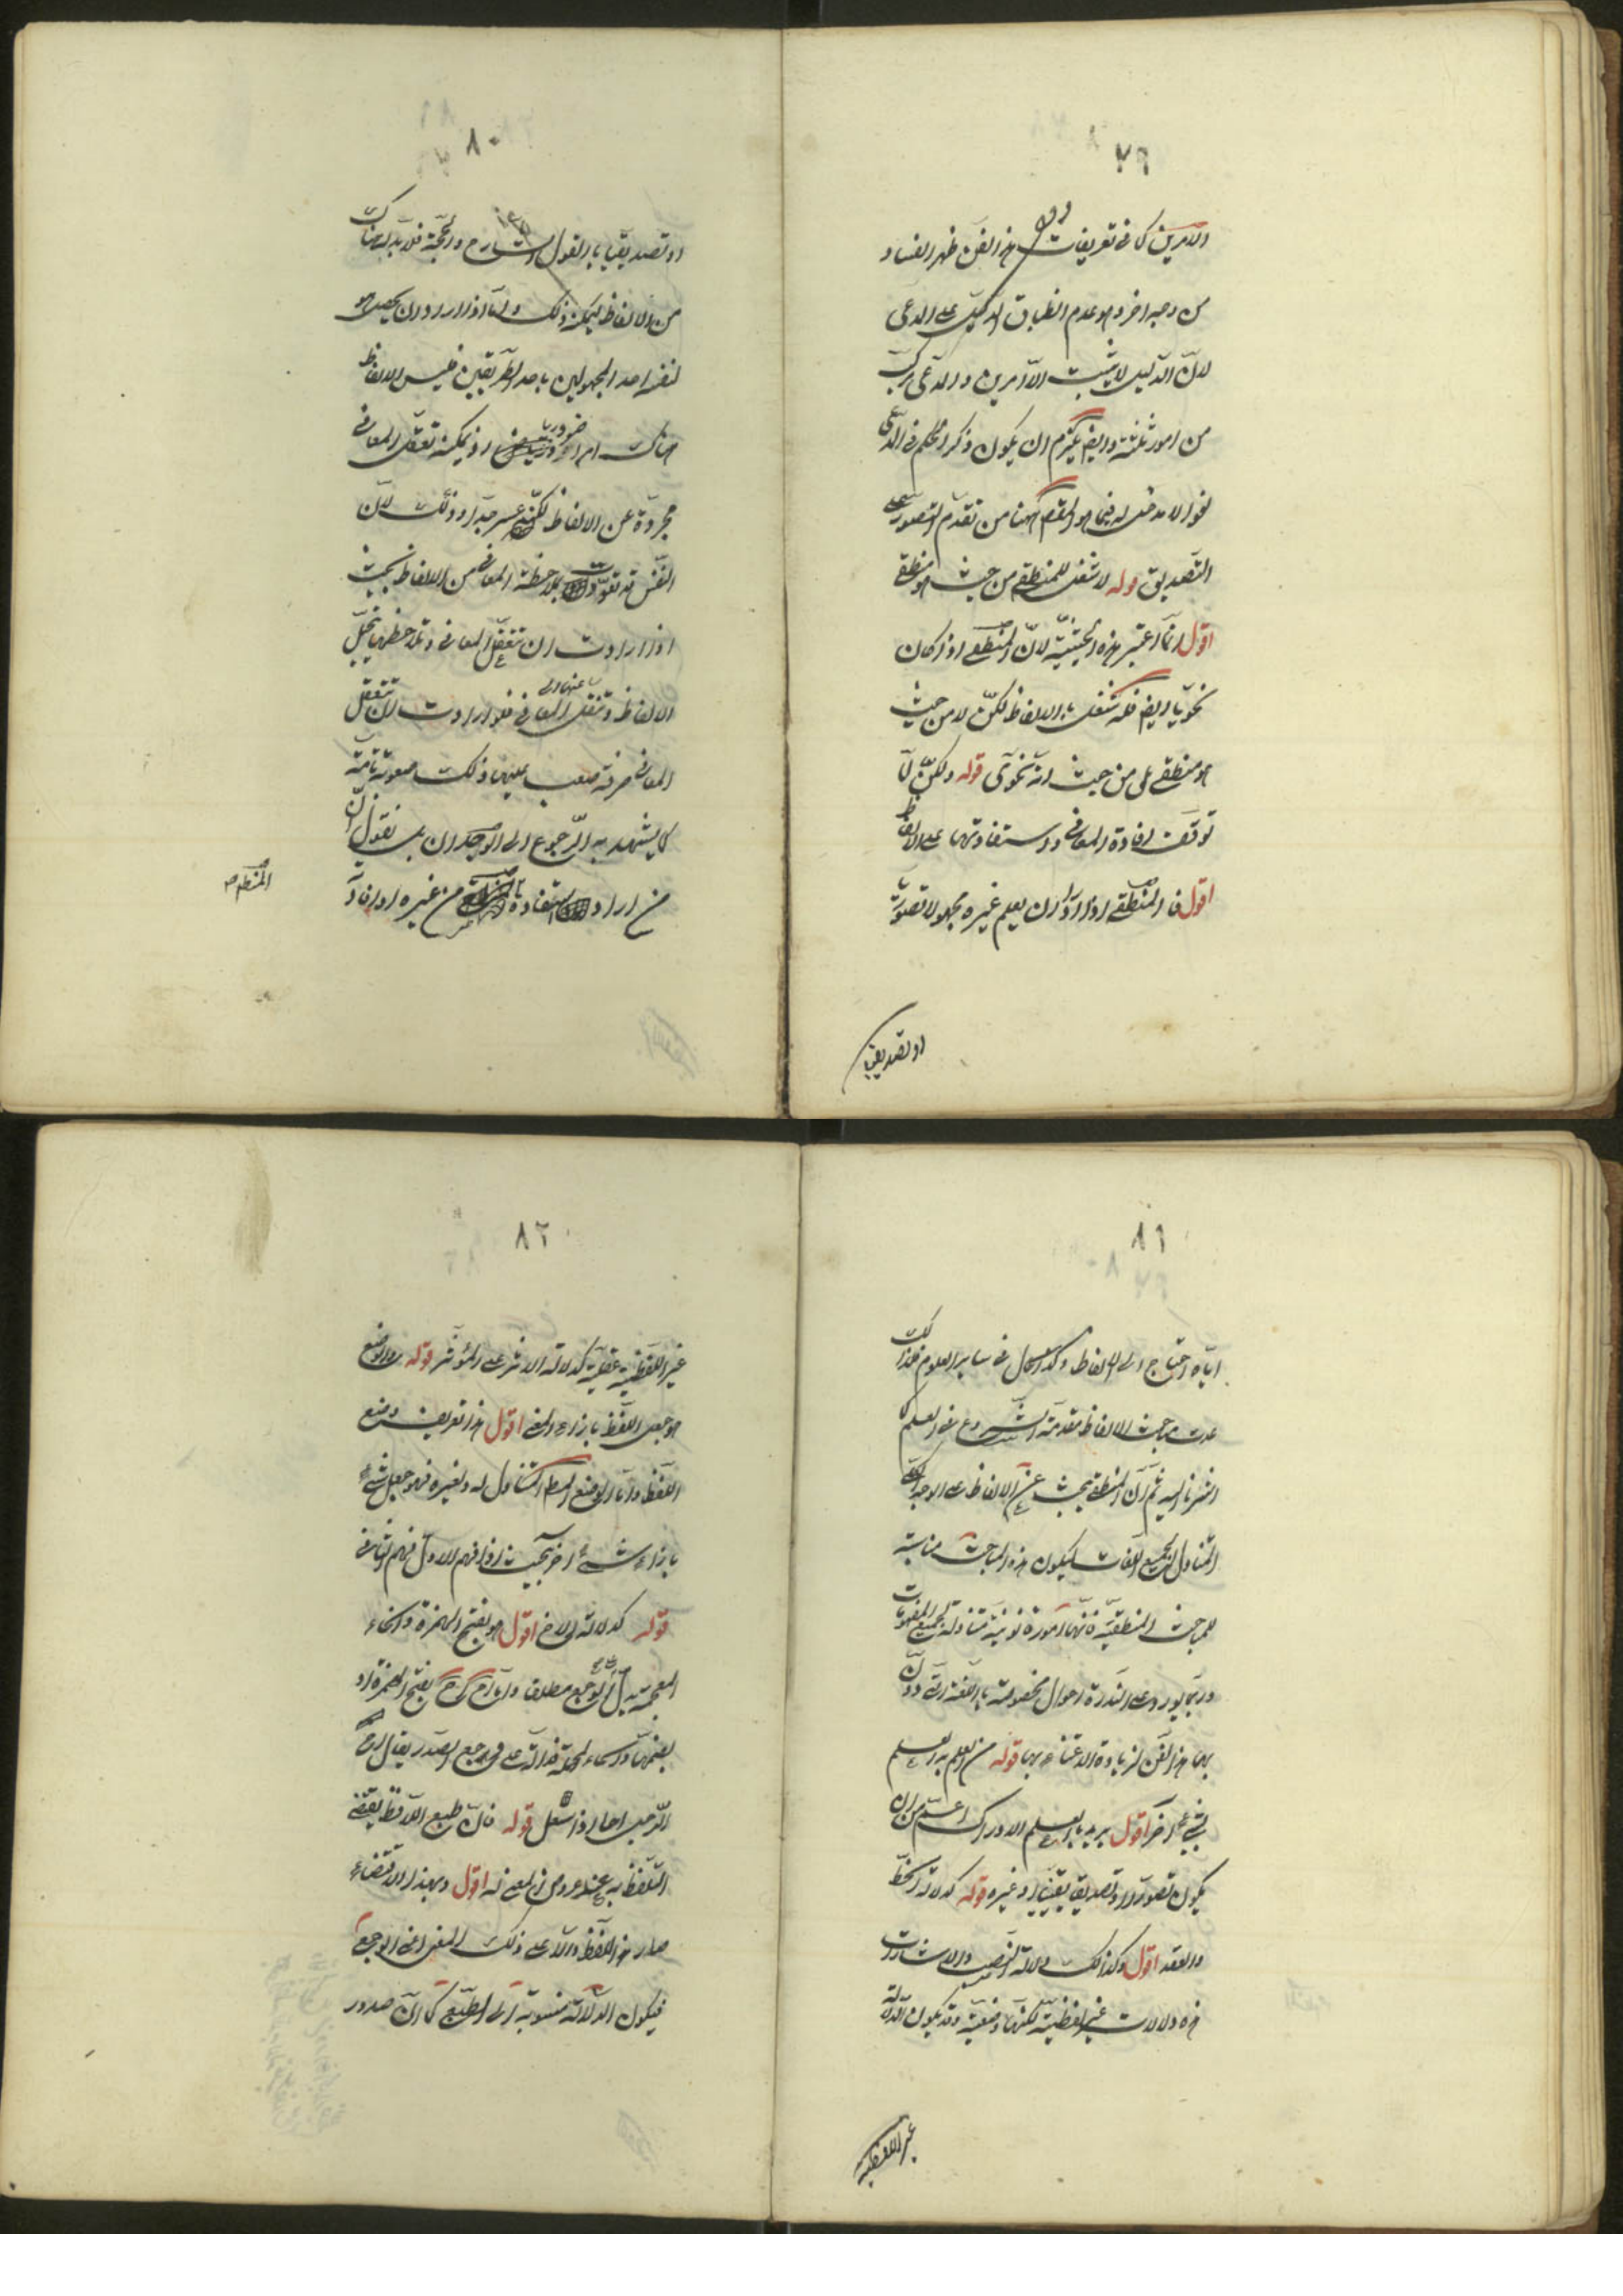 ٧٩
والامرين كما فى تعريفات هذا الفن ظهر الفساد
من وجه اخر وهو عدم انطباق الدليل على المدعى
لان الدليل لا يثبت الا امرين والمدعى مركب
من امور ثلثة وايض يلزم ان يكون ذكر الحكم فى المدعى
لغوا لا مدخل له فيما هو المقصود ههنا من تقدم التصور على
التصديق قوله لا شغل للمنطقى من حيث هو منطقى
اقول انما اعتبر هذه الحيثية لان المنطقى اذا كان
نحويا ايض فله شغل بالالفاظ لكن لا من حيث
هو منطقى بل من حيث انه نحوى قوله ولكن لما
توقف افادة المعانى واستفادتها على الالفاظ
اقول فالمنطقى اذا اراد ان يعلم غيره مجهولا تصوريا
او تصديقيا
٨٠
او تصديقيا بالقول الشارح والحجة فلا بد له هناك
من الالفاظ ليمكنه ذلك واما اذا اراد ان يحصل هو
لنفسه احد المجهولين باحد الطريقين فليس الالفاظ
هناك امرا ضروريا اذ يمكنه تعقل المعانى
مجردة عن الالفاظ لكنه عسر جدا وذلك لان
النفس قد تعودت بملاحظة المعانى من الالفاظ بحيث
اذا ارادت ان تتعقل المعانى وتلاحظها يتخيل
الالفاظ وتنتقل منها الى المعانى فلو ارادت ان تتعقل
المعانى صرفة صعب عليها ذلك صعوبة تامة
كما يشهد به الرجوع الى الوجدان بل نقول ان
من اراد استفادة المنطق من غيره او افادة
المنطق
٨١
اياه احتاج الى الالفاظ وكذا الحال فى ساير العلوم فلذلك
عدت مباحث الالفاظ مقدمة للشروع فى العلم كما
اشرنا اليه ثم ان المنطقى يبحث عن الالفاظ على الوجه الكلى
المتناول لجميع اللغات ليكون هذه المباحث مناسبة
للمباحث المنطقية فانها امور قانونية متناولة لجميع المفهومات
وربما يورد على الندرة احوال مخصوصة باللغة التى دون
بها هذا الفن لزيادة الاعتناء بها قوله من العلم به العلم
بشيء اخر اقول يريد بالعلم الادراك اعم من ان
يكون تصورا او تصديقا يقينيا او غيره قوله كدلالة الخط
والعقد اقول وكذلك دلالة النصب والاشارات
هذه دلالات غير لفظية لكنها وضعية وقد يكون الدلالة
غير اللفظية
٨٢
غير اللفظية عقلية كدلالة الاثر على المؤثر قوله والوضع
هو جعل اللفظ بازاء المعنى اقول هذا تعريف وضع
اللفظ واما الوضع المطلق المتناول له ولغيره فهو جعل شىء
بازاء شىء اخر بحيث اذا فهم الاول فهم الثانى
قوله كدلالة اخ اقول هو بفتح الهمزة والخاء
المعجمة يدل على الوجع مطلقا واما اح اح بفتح الهمزة او
بضمها والحاء المهملة فدالة على وجع الصدر يقال اح
الرجل احا اذا سعل قوله فان طبع اللافظ يقتضى
التلفظ به عند عروض المعنى له اقول وبهذا الاقتضاء
صار هذا اللفظ دالا على ذلك المعنى اعنى الوجع
فيكون الدلالة منسوبة الى الطبع كما ان صدور